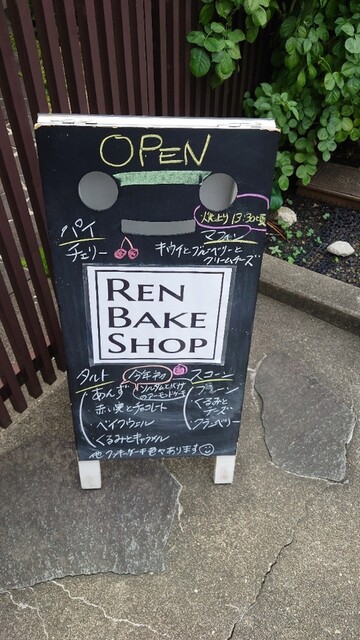 OPEN
焼上り13:30頃
パイ
マフィン
チェリー
キウイとブルーベリーと
クリームチーズ
REN
BAKE
SHOP
タルト
今年初
スコーン
あんず
ソルダムとバナナ
のアーモンドケーキ
プレーン
赤い実とチョコレート
くるみと
チーズ
ベイクウェル
クランベリー
くるみとキャラメル
他クッキー・ケーキ色々あります